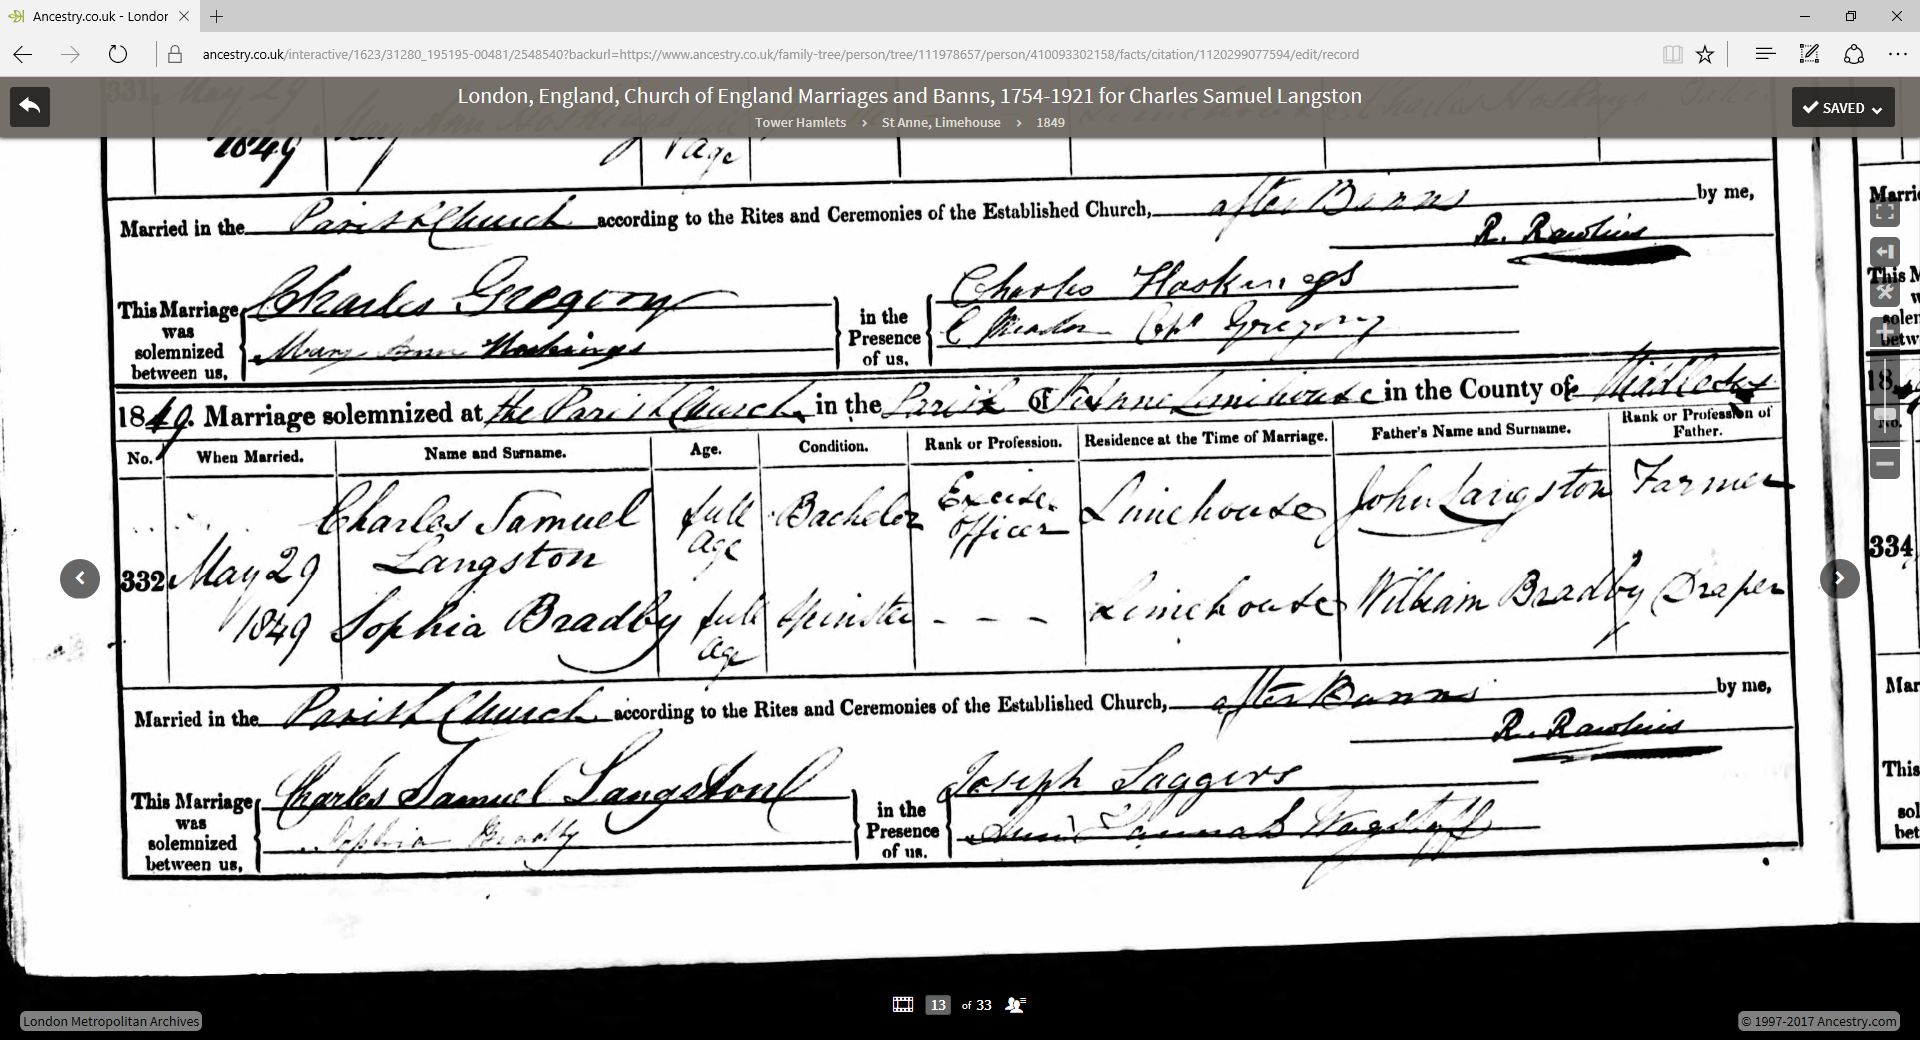 Ancestry.co.uk - London
ancestry.co.uk/interactive/1623/31280_195195-00481/2548540?backurl=https://www.ancestry.co.uk/family-tree/person/tree/111978657/person/410093302158/facts/citation/1120299077594/edit/record
London, England, Church of England Marriages and Banns, 1754-1921 for Charles Samuel Langston
Tower Hamlets > St Anne, Limehouse > 1849
SAVED
331 May 29
1849 age
Married in the Parish Church according to the Rites and Ceremonies of the Established Church, after Banns by me,
R. Rawlins
This Marriage was solemnized between us,
Charles Gregory
Mary Ann Hoskings
in the Presence of us,
Charles Hoskings
Gregory
1849. Marriage solemnized at the Parish Church in the Parish of St Anne Limehouse in the County of Middlesex
No. When Married. Name and Surname. Age. Condition. Rank or Profession. Residence at the Time of Marriage. Father's Name and Surname. Rank or Profession of Father.
332 May 29 1849
Charles Samuel Langston full age Bachelor Excise officer Limehouse John Langston Farmer
Sophia Bradby full age Spinster - - - Limehouse William Bradby Draper
Married in the Parish Church according to the Rites and Ceremonies of the Established Church, after Banns by me,
R. Rawlins
This Marriage was solemnized between us,
Charles Samuel Langston
Sophia Bradby
in the Presence of us,
Joseph Saggers
Hannah Wagstaff
334
13 of 33
London Metropolitan Archives
© 1997-2017 Ancestry.com